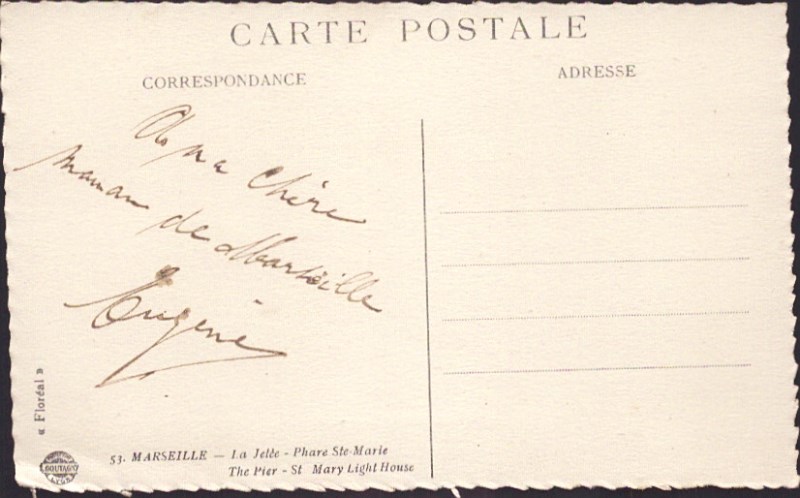 CARTE POSTALE
CORRESPONDANCE
ADRESSE
A ma chère
maman
de Marseille
Eugène
« Floréal »
53. MARSEILLE — La Jetée - Phare Ste-Marie
The Pier - St Mary Light House
LYON